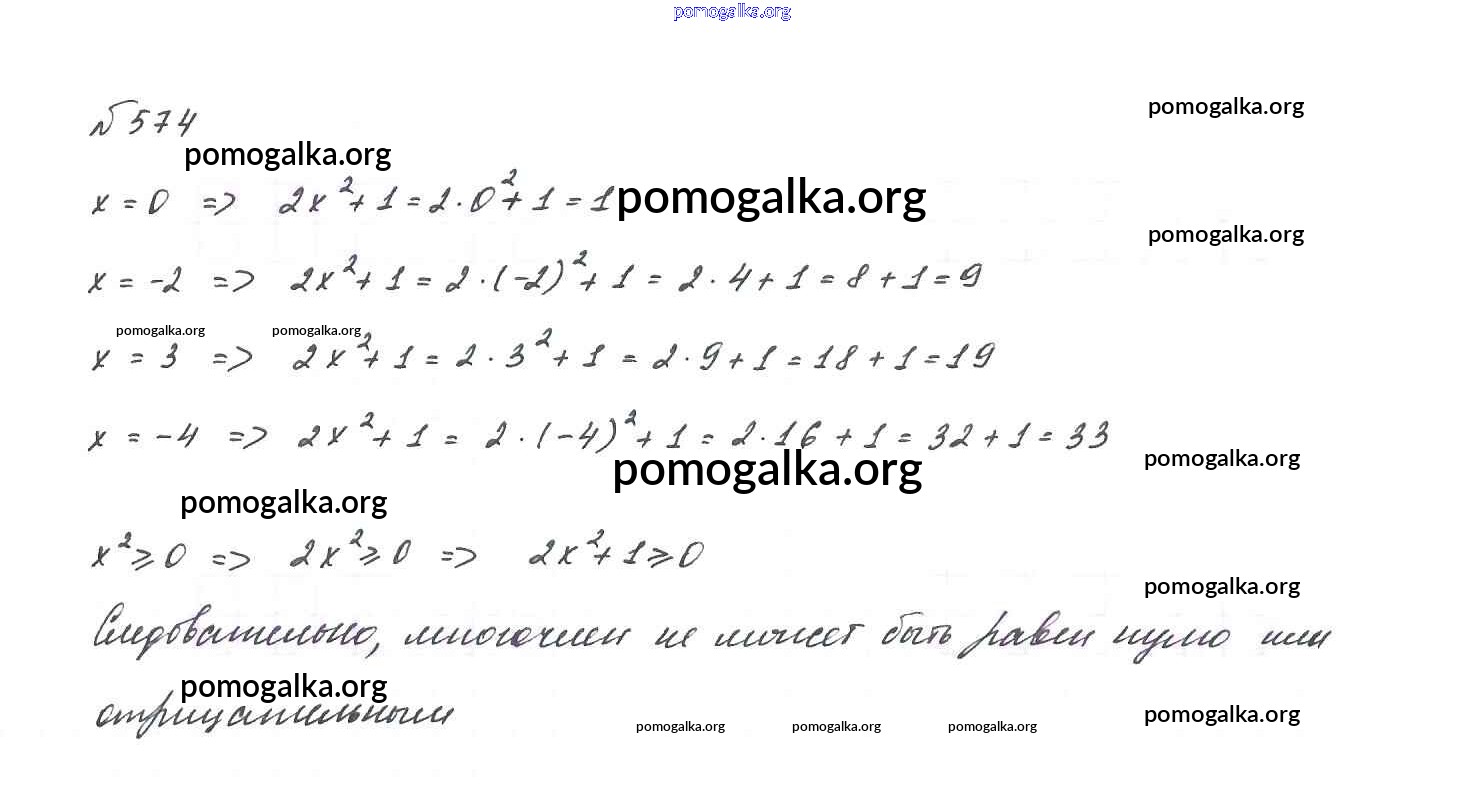 pomogalka.org
pomogalka.org
№ 574
pomogalka.org
x = 0 => 2x² + 1 = 2 · 0² + 1 = 1
pomogalka.org
pomogalka.org
x = -2 => 2x² + 1 = 2 · (-2)² + 1 = 2 · 4 + 1 = 8 + 1 = 9
pomogalka.org pomogalka.org
x = 3 => 2x² + 1 = 2 · 3² + 1 = 2 · 9 + 1 = 18 + 1 = 19
x = -4 => 2x² + 1 = 2 · (-4)² + 1 = 2 · 16 + 1 = 32 + 1 = 33
pomogalka.org pomogalka.org
pomogalka.org
x² ⩾ 0 => 2x² ⩾ 0 => 2x² + 1 ⩾ 0
pomogalka.org
Следовательно, многочлен не может быть равен нулю или
pomogalka.org
отрицательным
pomogalka.org pomogalka.org pomogalka.org pomogalka.org